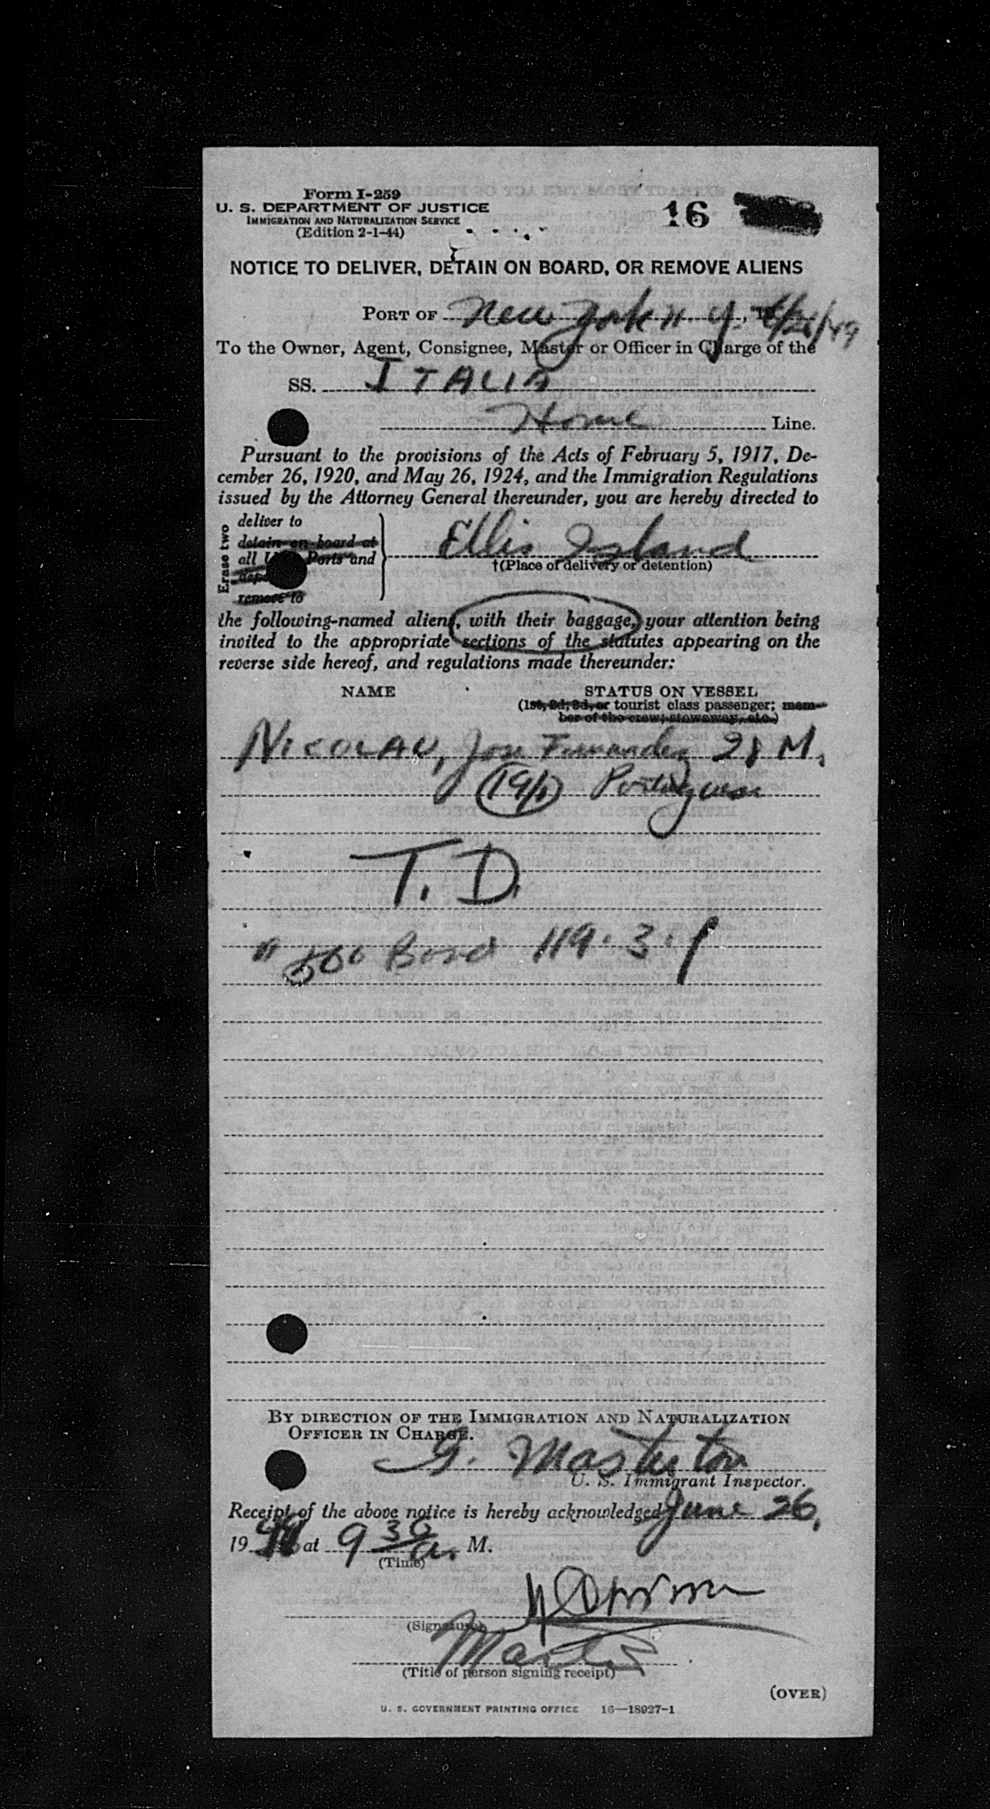 Form I-259
U. S. DEPARTMENT OF JUSTICE
IMMIGRATION AND NATURALIZATION SERVICE
(Edition 2-1-44)
16
NOTICE TO DELIVER, DETAIN ON BOARD, OR REMOVE ALIENS
PORT OF New York N. Y. 6/26/49
To the Owner, Agent, Consignee, Master or Officer in Charge of the
SS. ITALIA
Home Line.
Pursuant to the provisions of the Acts of February 5, 1917, De-
cember 26, 1920, and May 26, 1924, and the Immigration Regulations
issued by the Attorney General thereunder, you are hereby directed to
Erase two
deliver to
detain on board at
all U. S. Ports and
remove to
Ellis Island
†(Place of delivery or detention)
the following-named aliens, with their baggage, your attention being
invited to the appropriate sections of the statutes appearing on the
reverse side hereof, and regulations made thereunder:
NAME STATUS ON VESSEL
(1st, 2d, 3d, or tourist class passenger; mem-
ber of the crew; stowaway, etc.)
NICOLAU, Jose Fernandez 28 M.
(19/1) Portuguese
T. D.
500 Bond 119.3.1
BY DIRECTION OF THE IMMIGRATION AND NATURALIZATION
OFFICER IN CHARGE.
G. Masterton
U. S. Immigrant Inspector.
Receipt of the above notice is hereby acknowledged June 26,
19 49 at 9 30 a. M.
(Time)
(Signature)
Master
(Title of person signing receipt)
(OVER)
U. S. GOVERNMENT PRINTING OFFICE 16—18927-1